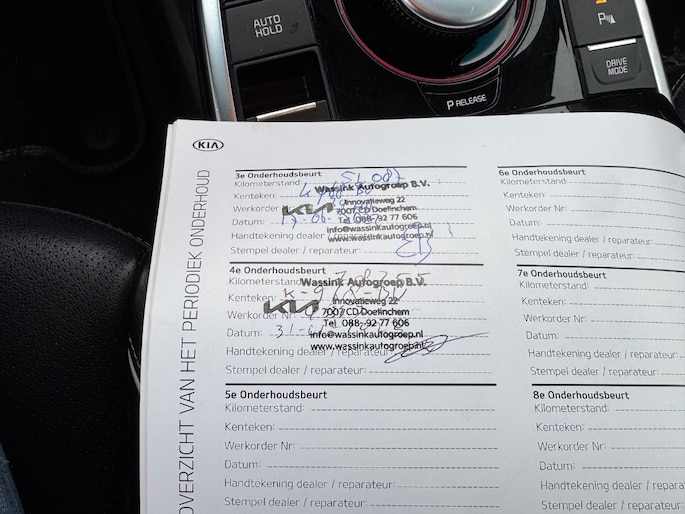 AUTO
HOLD
P
P RELEASE
DRIVE
MODE
KIA
OVERZICHT VAN HET PERIODIEK ONDERHOUD
3e Onderhoudsbeurt
Kilometerstand:
Wassink Autogroep B.V.
Kenteken:
Innovatieweg 22
Werkorder
KIA
7007 CD Doetinchem
Datum:
Tel. 088- 92 77 606
info@wassinkautogroep.nl
Handtekening dealer / reparateur:
www.wassinkautogroep.nl
Stempel dealer / reparateur:
4e Onderhoudsbeurt
Kilometerstand:
Wassink Autogroep B.V.
Kenteken:
Innovatieweg 22
Werkorder Nr:
KIA
7007 CD Doetinchem
Datum: 31-
Tel. 088- 92 77 606
info@wassinkautogroep.nl
Handtekening dealer / reparateur:
www.wassinkautogroep.nl
Stempel dealer / reparateur:
5e Onderhoudsbeurt
Kilometerstand:
Kenteken:
Werkorder Nr:
Datum:
Handtekening dealer / reparateur:
Stempel dealer / reparateur:
6e Onderhoudsbeurt
Kilometerstand:
Kenteken:
Werkorder Nr:
Datum:
Handtekening dealer / reparateur:
Stempel dealer / reparateur:
7e Onderhoudsbeurt
Kilometerstand:
Kenteken:
Werkorder Nr:
Datum:
Handtekening dealer / reparateur:
Stempel dealer / reparateur:
8e Onderhoudsbeurt
Kilometerstand:
Kenteken:
Werkorder Nr:
Datum:
Handtekening dealer / reparateur:
Stempel dealer / reparateur: